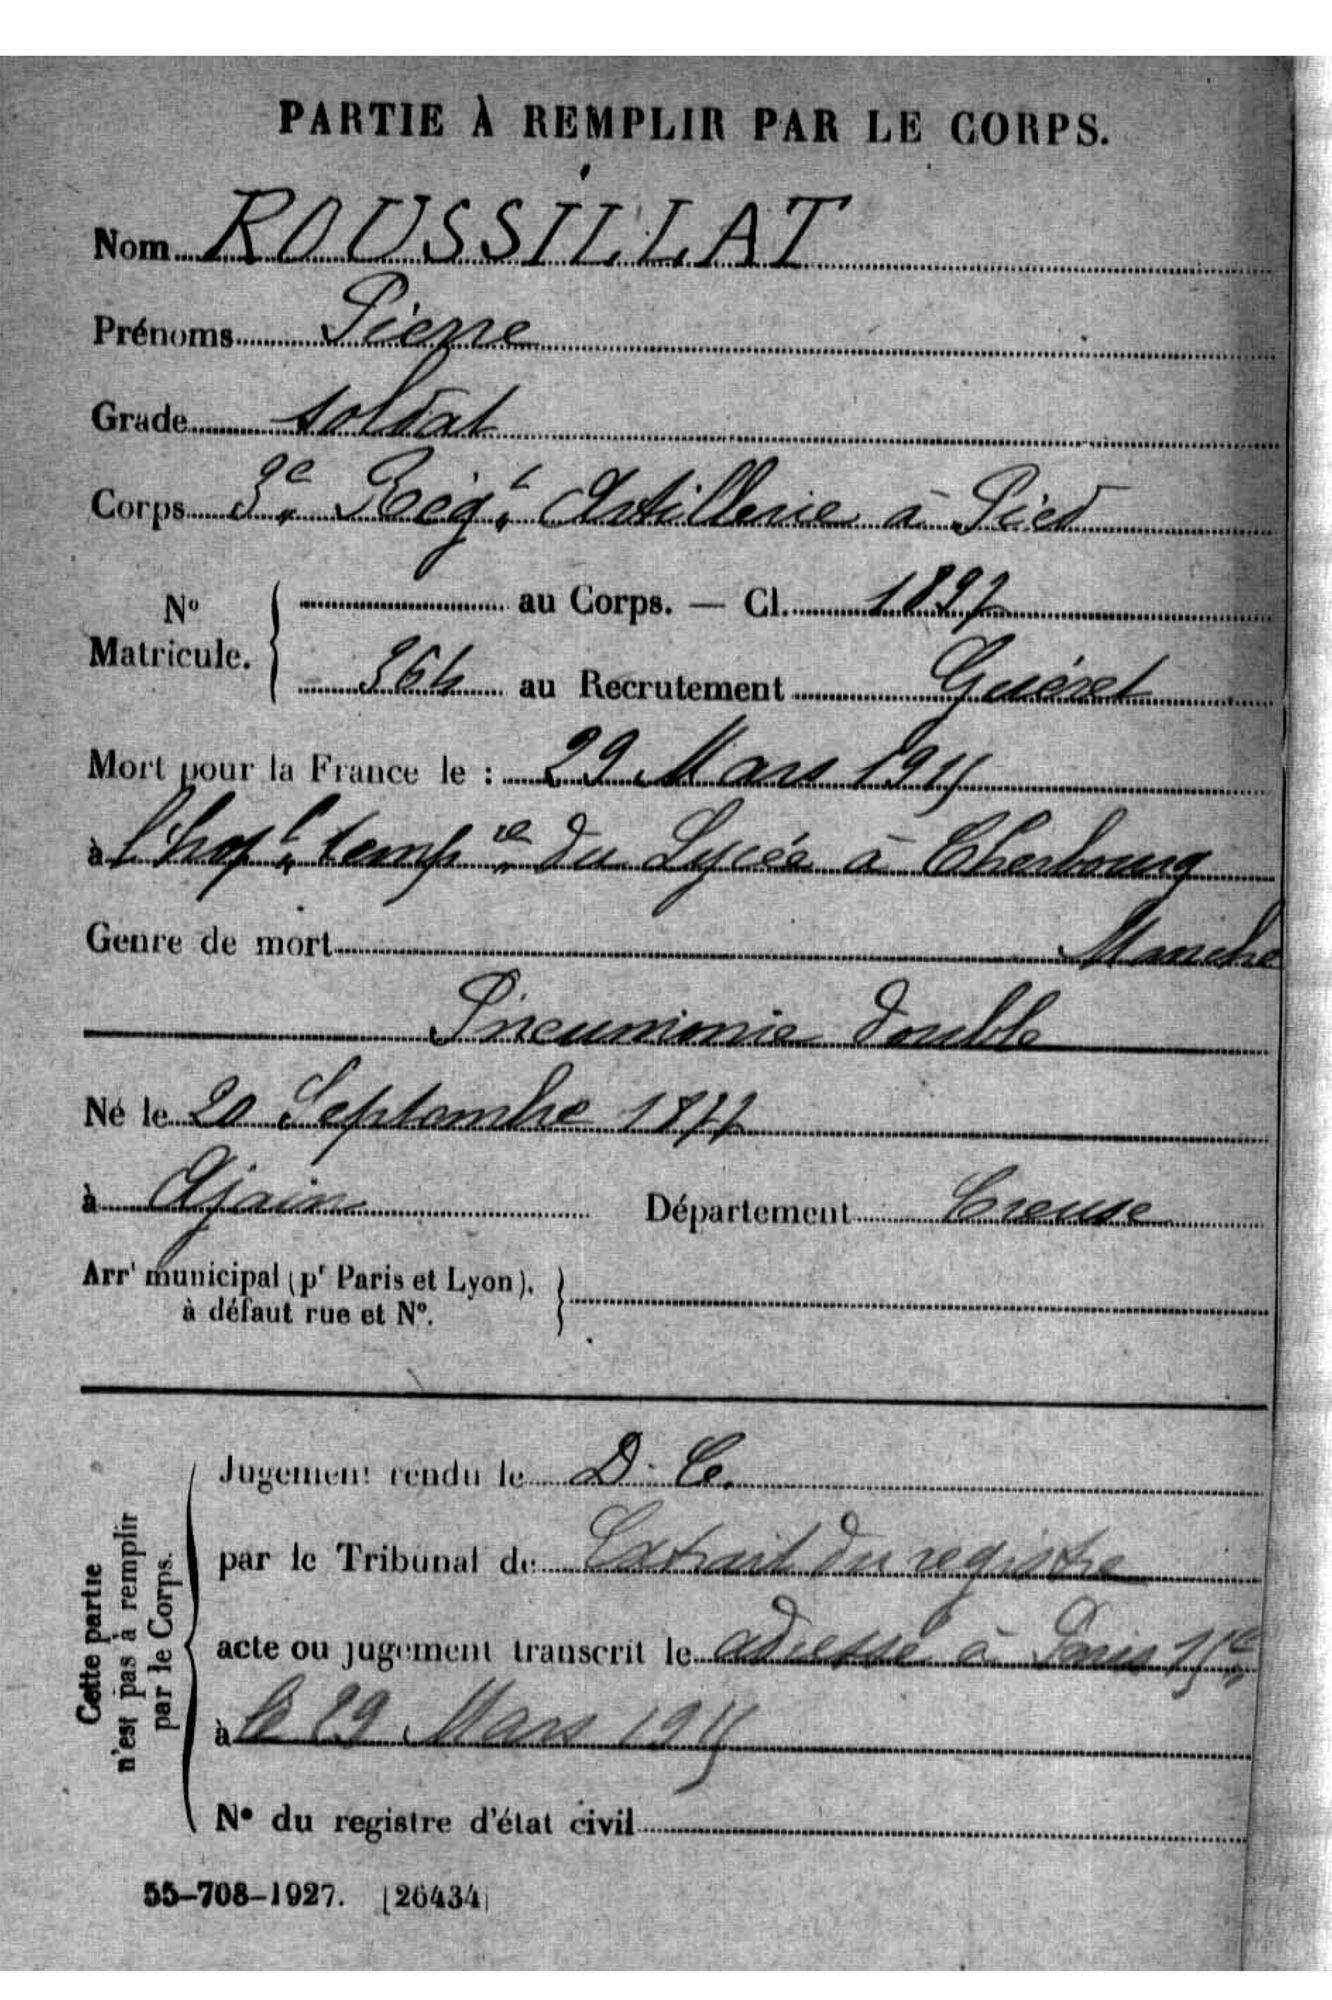 PARTIE À REMPLIR PAR LE CORPS.
Nom ROUSSILLAT
Prénoms Pierre
Grade soldat
Corps 3e Régt Artillerie à Pied
No Matricule. au Corps. — Cl. 1897
364 au Recrutement Guéret
Mort pour la France le : 29 Mars 1915
à l'hopl tempre du Lycée à Cherbourg
Genre de mort Manche
Pneumonie double
Né le 20 Septembre 1877
à Ajain Département Creuse
Arrt municipal (pr Paris et Lyon),
à défaut rue et No.
Cette partie
n'est pas à remplir
par le Corps.
Jugement rendu le D. C.
par le Tribunal de Extrait du registre
acte ou jugement transcrit le adressé à Paris 15e
à le 29 Mars 1915
No du registre d'état civil
55-708-1927. [26434]